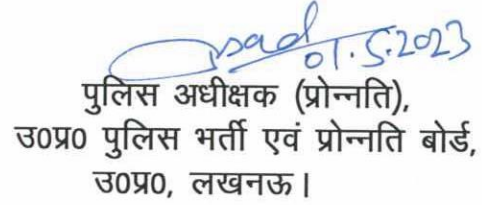 01.5.2023
पुलिस अधीक्षक (प्रोन्नति),
उ0प्र0 पुलिस भर्ती एवं प्रोन्नति बोर्ड,
उ0प्र0, लखनऊ।